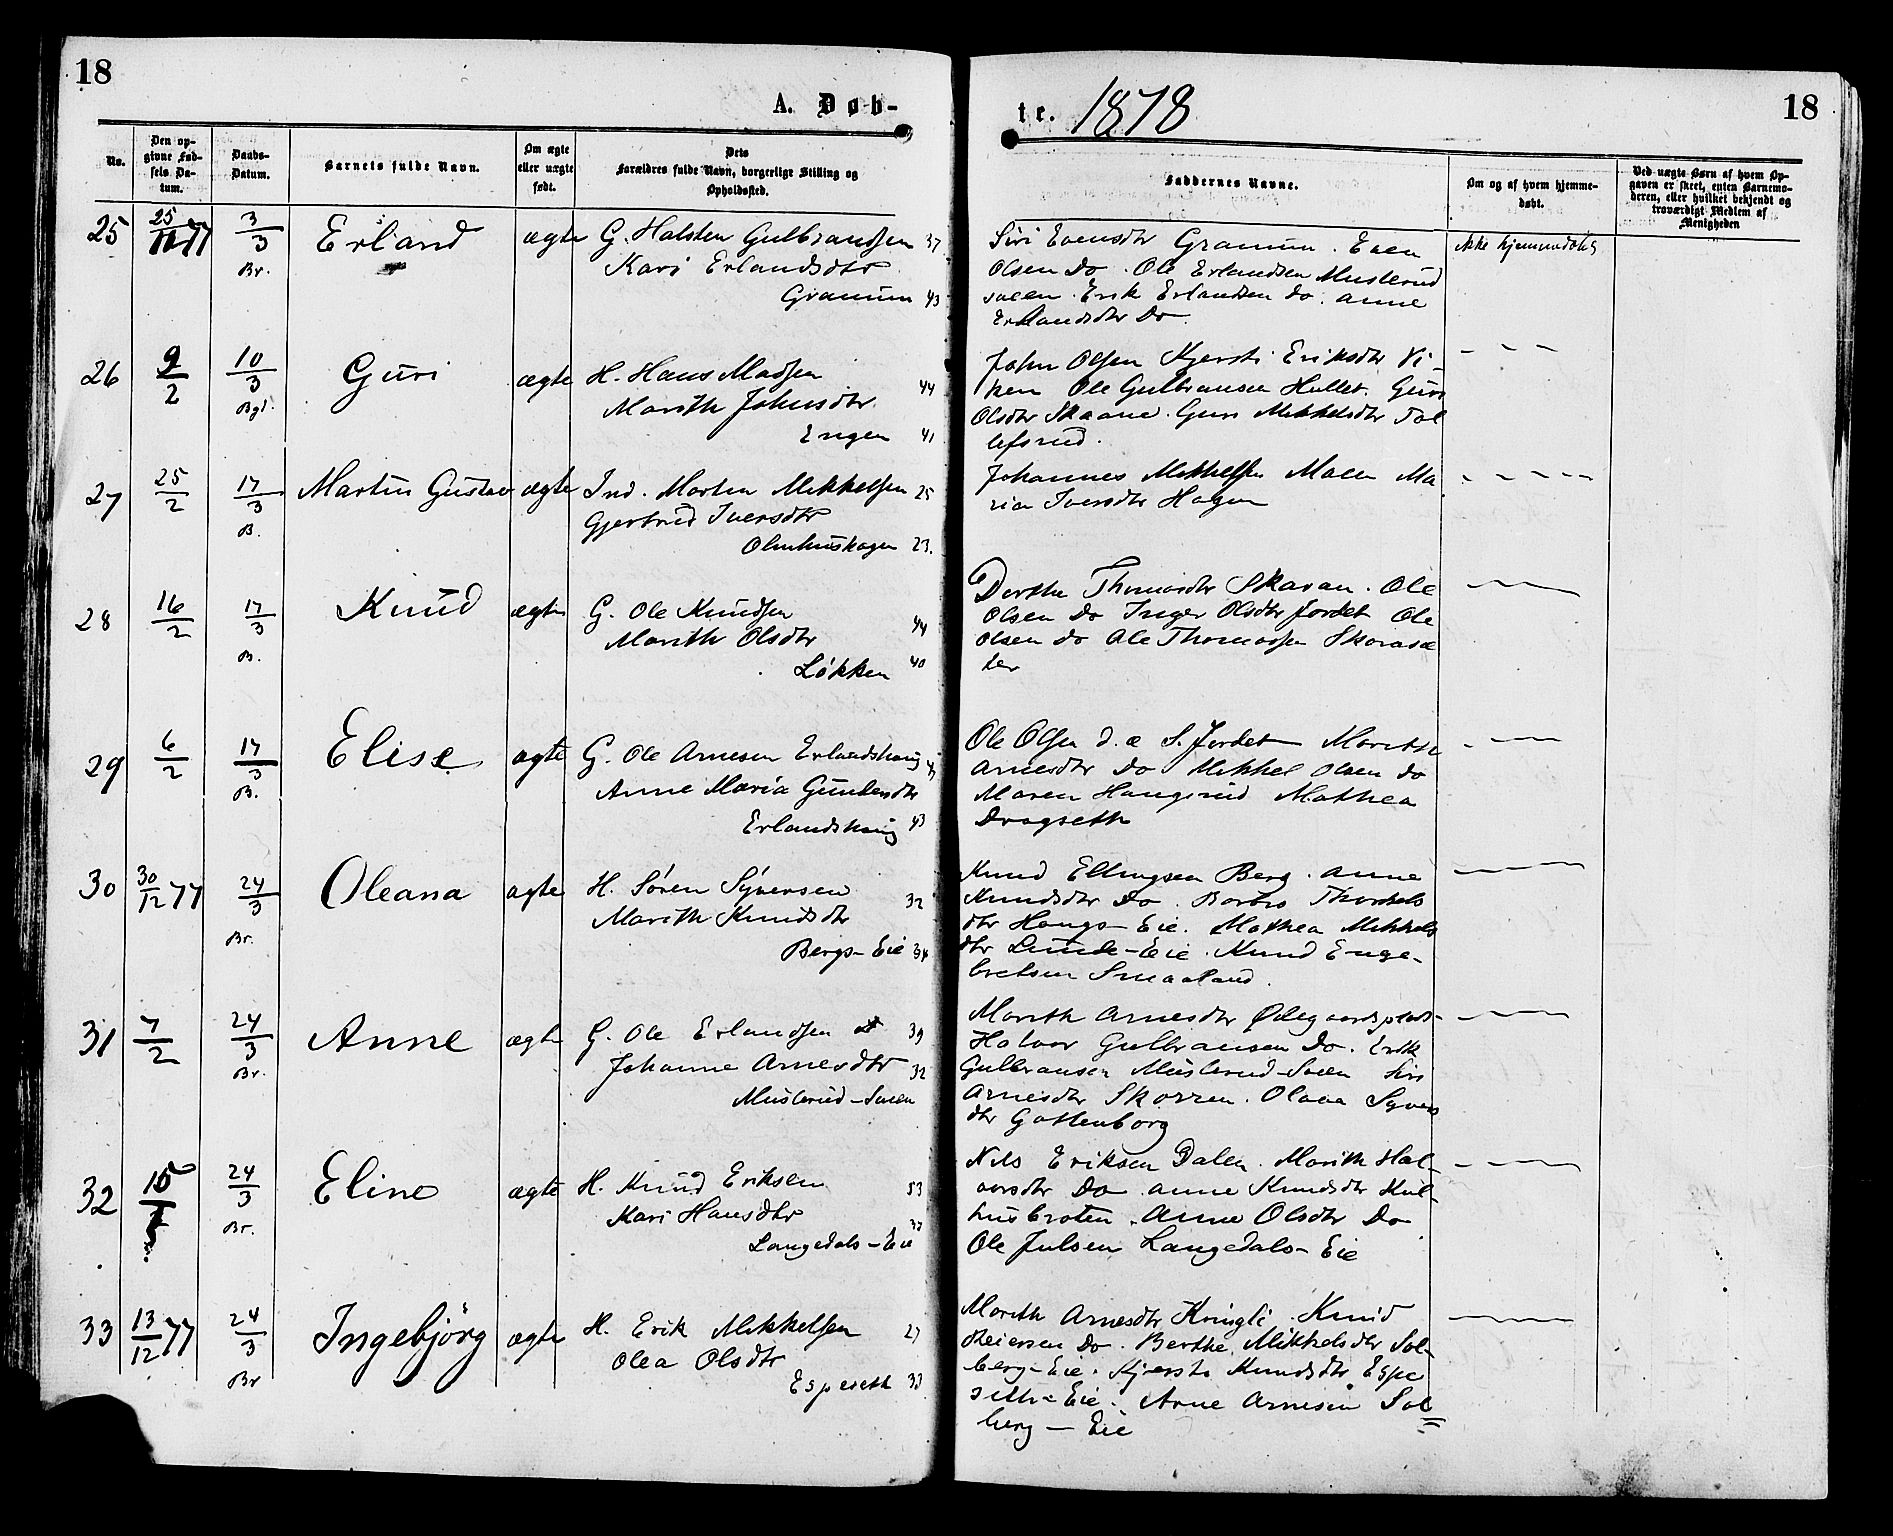 18
A. Døb-
te. 1878
18
No.
Den op-
givne Fød-
sels Da-
tum.
Daabs-
Datum.
Barnets fulde Navn.
Om ægte
eller uægte
født.
Dets
Forældres fulde Navn, borgerlige Stilling og
Opholdssted.
Faddernes Navne.
Om og af hvem hjemme-
døbt.
Ved uægte Børn af hvem Op-
gaven er skeet, enten Barnemo-
deren, eller hvilket bekjendt og
troværdigt Medlem af
Menigheden
25 25/11 77 3/3 Br. Erland ægte G. Halsten Gulbrandsen 37
Kari Erlandsdtr
Granum 43
Siri Evensdtr Granum. Even
Olsen Do. Ole Erlandsen Musterud
sveen. Erik Erlandsen Do. Anne
Erlandsdtr Do.
ikke hjemmedøbt
26 9/2 10/3 Guri ægte H. Hans Madsen 44
Marith Johnsdtr.
Engen 41
John Olsen Kjersti Eriksdtr Vi-
ken Ole Gulbransen Hullet. Guri
Olsdtr Skaane. Guri Mikkelsdtr Tol
lefsrud.
27 25/2 17/3 B. Martin Gustav ægte Ind. Morten Mikkelsen 25
Gjertrud Iversdtr
Olmhushagen 23.
Johannes Mikkelsen Maen Ma
ria Iversdtr Hagen
28 16/2 17/3 B. Knud ægte G. Ole Knudsen 44
Marith Olsdtr
Løkken 40
Dorthe Thomasdtr Skavan. Ole
Olsen Do Inger Olsdtr Jordet Ole
Olsen do Ole Thomassen Skorasæ
ter
29 6/2 17/3 B. Elise ægte G. Ole Arnesen Erlandshaug
Anne Maria Gundersdtr
Erlandshaug 43
Ole Olsen d. æ S. Jordet Marith
Arnesdtr Do Mikkel Olsen do
Maren Haugsrud Mathea
Dragseth
30 30/12 77 24/3 Br. Oleana ægte H. Søren Syversen 32
Marith Knudsdtr
Bergs-Eie 34
Knud Ellingsen Berg. Anne
Knudsdtr Do. Barbro Thorkels
dtr Haugs-Eie. Mathea Mikkels
dtr Lunde-Eie. Knud Enge-
bretsen Smaaland.
31 7/2 24/3 Br. Anne ægte G. Ole Erlandsen 39
Johanne Arnesdtr 32
Musterud-Sveen
Marith Arnesdtr Ødegaardsplads-
Halvor Gulbransen Do. Erik
Gulbransen Musterud-Sveen Siri
Arnesdtr Skorren. Olava Syvers
dtr Gottenborg
32 15 24/3 Br. Eline ægte H. Knud Eriksen 53
Kari Hansdtr
Langedals-Eie
Nils Eriksen Dalen. Marith Hal-
vorsdtr Do. Anne Knudsdtr Kul-
husbroten. Anne Olsdtr Do
Ole Julsen Langedals-Eie
33 13/12 77 24/3 Br Ingebjörg ægte H. Erik Mikkelsen 27
Olea Olsdtr
Espeseth 33
Marith Arnesdtr Kringli. Knud
Reiersen Do. Berthe Mikkelsdtr Sol-
berg-Eie. Kjersti Knudsdtr Espe
seth-Eie. Arne Arnesen Sol
berg - Eie